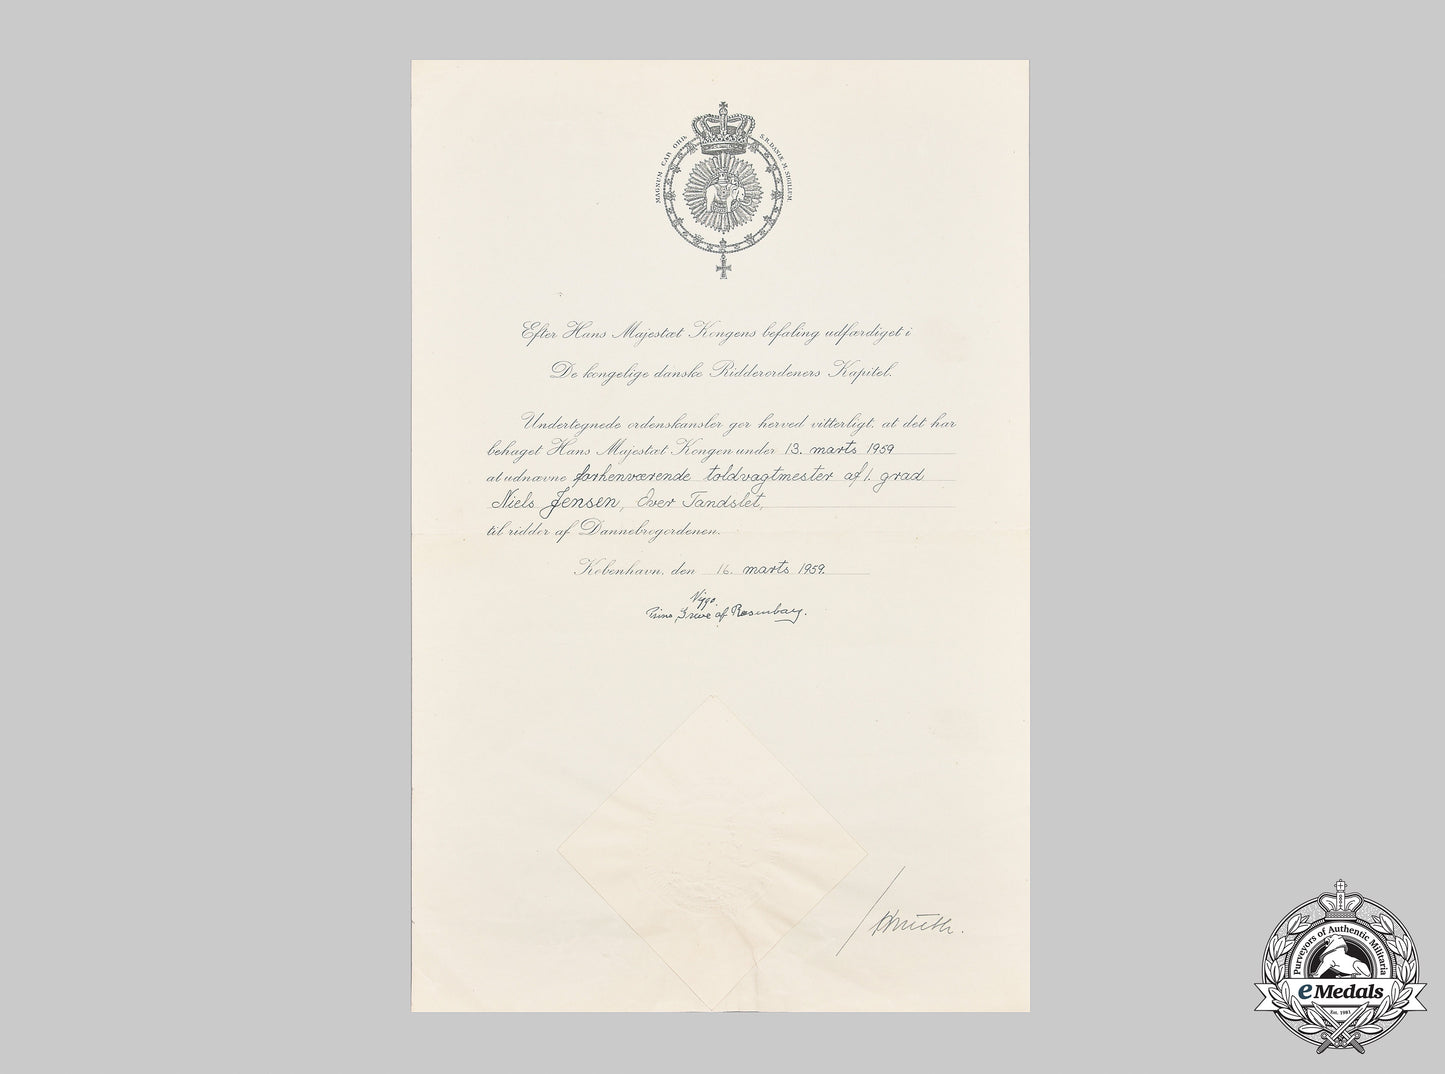 MAGNUM CAP. ORD. S. R. DANIÆ M. SIGILLUM.
Efter Hans Majestæt Kongens befaling udfærdiget i
De kongelige danske Ridderordeners Kapitel.
Undertegnede ordenskansler gør herved vitterligt, at det har
behaget Hans Majestæt Kongen under 13. marts 1959
at udnævne forhenværende toldvagtmester af 1. grad
Niels Jensen, Over Tandslet,
til ridder af Dannebrogordenen.
København, den 16. marts 1959.
Viggo.
Prins, Greve af Rosenborg.
Purveyors of Authentic Militaria
eMedals
Est. 1981